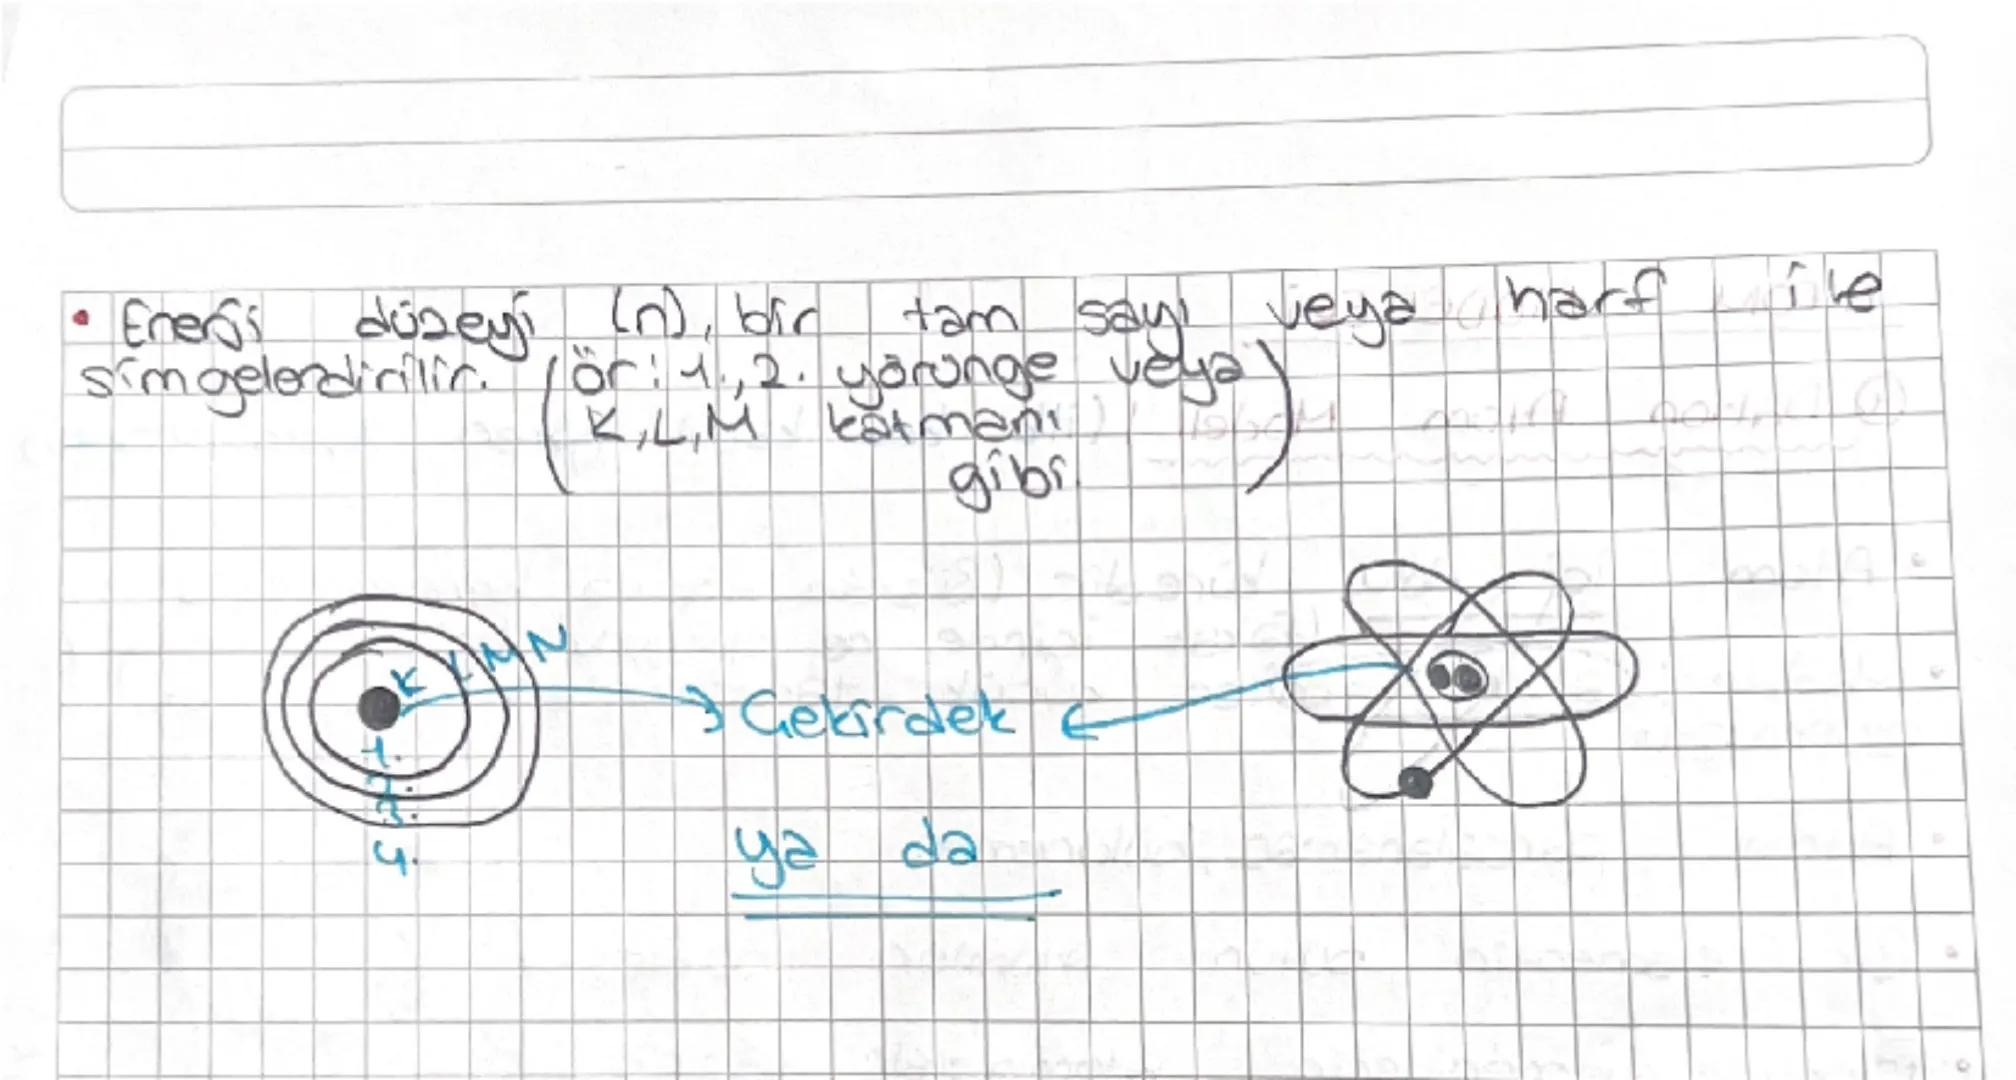 • Enerji düzeyi (n), bir tam sayı veya harf ile
simgelendirilir. (ör: 1., 2. yörünge veya
K, L, M katmanı
gibi.)
K L M N
Çekirdek
1.
2.
3.
4.
ya da